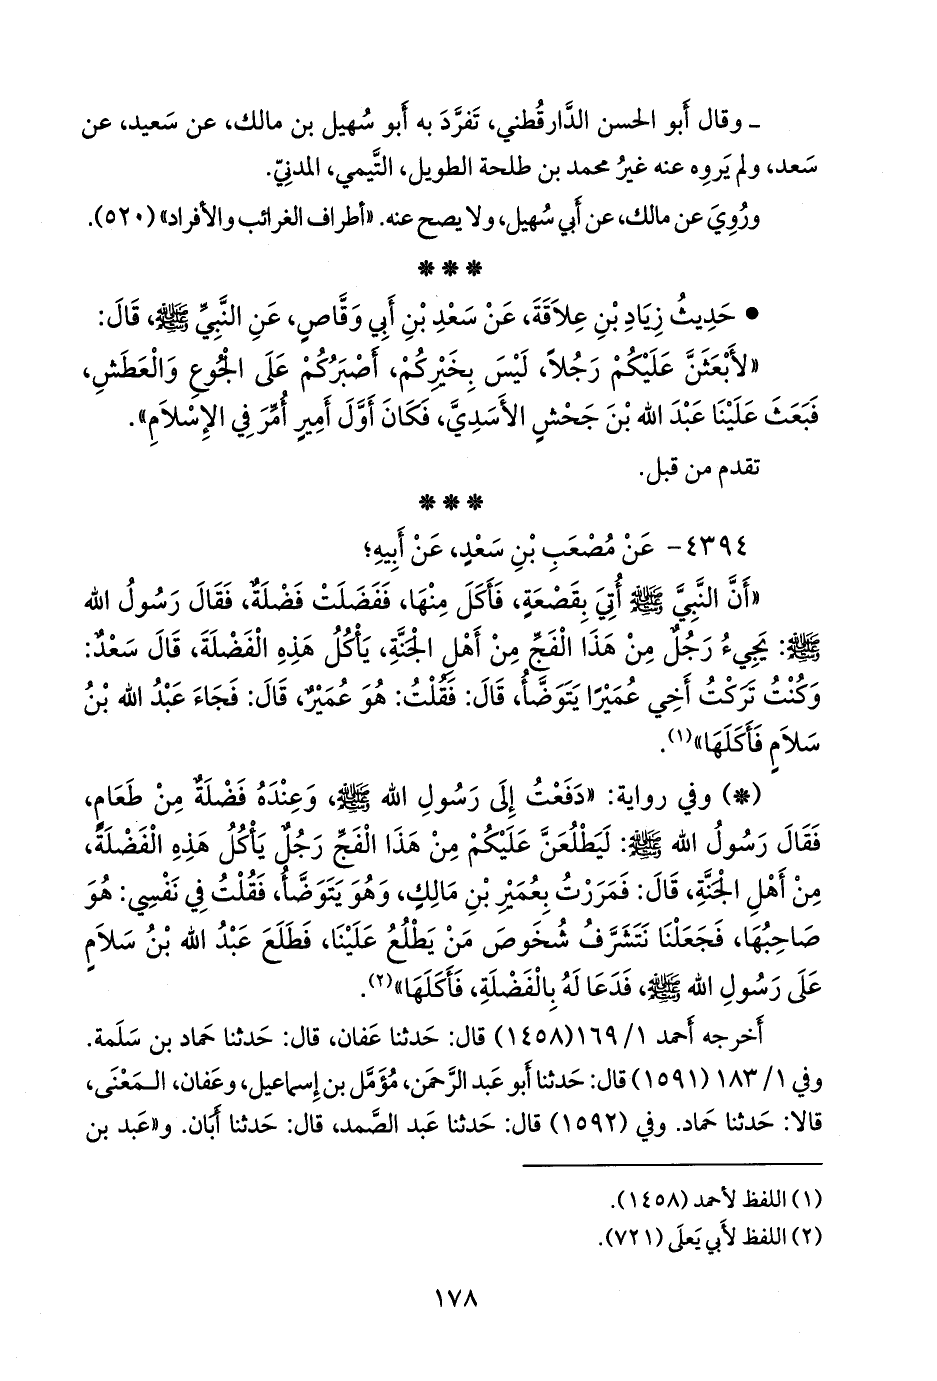 ـ وقال أَبو الحسن الدَّارقُطني، تَفرَّدَ به أَبو سُهيل بن مالك، عن سَعيد، عن
سَعد، ولم يَروِه عنه غيرُ محمد بن طلحة الطويل، التَّيمي، المدنيّ.
ورُوِيَ عن مالك، عن أَبي سُهيل، ولا يصح عنه. «أطراف الغرائب والأفراد» (٥٢٠).
* * *
• حَدِيثُ زِيَادِ بْنِ عِلَاقَةَ، عَنْ سَعْدِ بْنِ أَبِي وَقَّاصٍ، عَنِ النَّبِيِّ ﷺ، قَالَ:
«لأَبْعَثَنَّ عَلَيْكُمْ رَجُلاً، لَيْسَ بِخَيْرِكُمْ، أَصْبَرُكُمْ عَلَى الْجُوعِ وَالْعَطَشِ،
فَبَعَثَ عَلَيْنَا عَبْدَ الله بْنَ جَحْشٍ الأَسَدِيَّ، فَكَانَ أَوَّلَ أَمِيرٍ أُمِّرَ فِي الإِسْلَامِ».
تقدم من قبل.
* * *
٤٣٩٤- عَنْ مُصْعَبِ بْنِ سَعْدٍ، عَنْ أَبِيهِ؛
«أَنَّ النَّبِيَّ ﷺ أُتِيَ بِقَصْعَةٍ، فَأَكَلَ مِنْهَا، فَفَضَلَتْ فَضْلَةٌ، فَقَالَ رَسُولُ الله
ﷺ: يَجِيءُ رَجُلٌ مِنْ هَذَا الْفَجِّ مِنْ أَهْلِ الْجَنَّةِ، يَأْكُلُ هَذِهِ الْفَضْلَةَ، قَالَ سَعْدٌ:
وَكُنْتُ تَرَكْتُ أَخِي عُمَيْرًا يَتَوَضَّأُ، قَالَ: فَقُلْتُ: هُوَ عُمَيْرٌ، قَالَ: فَجَاءَ عَبْدُ الله بْنُ
سَلَامٍ فَأَكَلَهَا»(١).
(*) وفي رواية: «دَفَعْتُ إِلَى رَسُولِ الله ﷺ، وَعِنْدَهُ فَضْلَةٌ مِنْ طَعَامٍ،
فَقَالَ رَسُولُ الله ﷺ: لَيَطْلُعَنَّ عَلَيْكُمْ مِنْ هَذَا الْفَجِّ رَجُلٌ يَأْكُلُ هَذِهِ الْفَضْلَةَ،
مِنْ أَهْلِ الْجَنَّةِ، قَالَ: فَمَرَرْتُ بِعُمَيْرِ بْنِ مَالِكٍ، وَهُوَ يَتَوَضَّأُ، فَقُلْتُ فِي نَفْسِي: هُوَ
صَاحِبُهَا، فَجَعَلْنَا نَتَشَرَّفُ شُخُوصَ مَنْ يَطْلُعُ عَلَيْنَا، فَطَلَعَ عَبْدُ الله بْنُ سَلَامٍ
عَلَى رَسُولِ الله ﷺ، فَدَعَا لَهُ بِالْفَضْلَةِ، فَأَكَلَهَا»(٢).
أَخرجه أَحمد ١/ ١٦٩(١٤٥٨) قال: حَدثنا عَفان، قال: حَدثنا حَماد بن سَلَمة.
وفي ١/ ١٨٣ (١٥٩١) قال: حَدثنا أَبو عبد الرَّحمَن، مُؤَمَّل بن إِسماعيل، وعَفان، الـمَعْنَى،
قالا: حَدثنا حَماد. وفي (١٥٩٢) قال: حَدثنا عَبد الصَّمد، قال: حَدثنا أَبَان. و«عَبد بن
(١) اللفظ لأحمد (١٤٥٨).
(٢) اللفظ لأَبي يَعلَى (٧٢١).
١٧٨